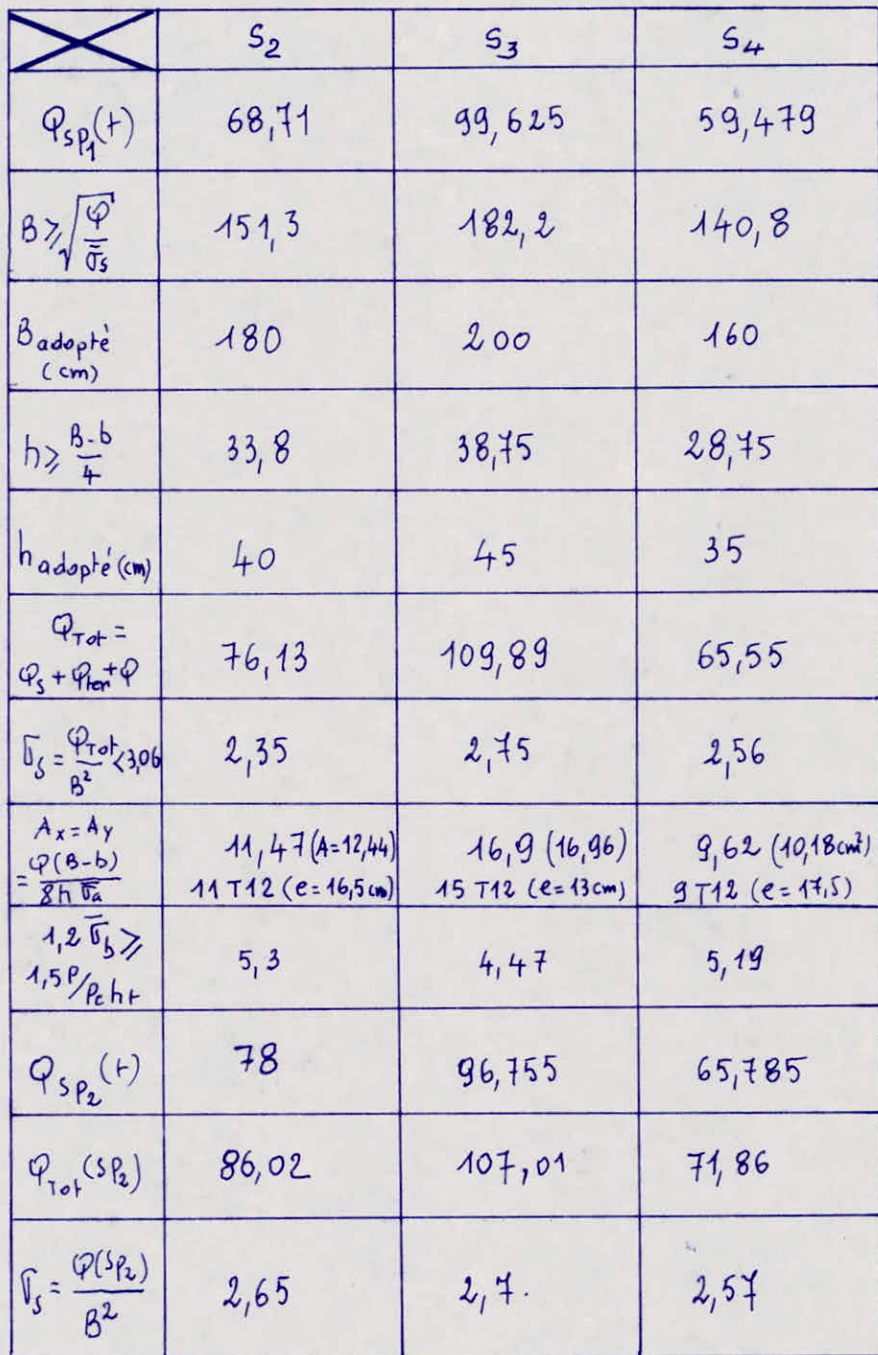 S2 S3 S4
QSP1(t) 68,71 99,625 59,479
B ≥ √(Q/σ̄s) 151,3 182,2 140,8
B adopté (cm) 180 200 160
h ≥ (B-b)/4 33,8 38,75 28,75
h adopté (cm) 40 45 35
QTot = Qs + Qter + Q 76,13 109,89 65,55
σs = QTot/B² < 3,06 2,35 2,75 2,56
Ax = Ay = Q(B-b)/8h σ̄a 11,47 (A=12,44) 16,9 (16,96) 9,62 (10,18cm²)
11 T12 (e=16,5cm) 15 T12 (e=13cm) 9 T12 (e=17,5)
1,2 σ̄b ≥ 1,5P/Pc ht 5,3 4,47 5,19
QSP2(t) 78 96,755 65,785
QTot(SP2) 86,02 107,01 71,86
σs = Q(SP2)/B² 2,65 2,7. 2,57